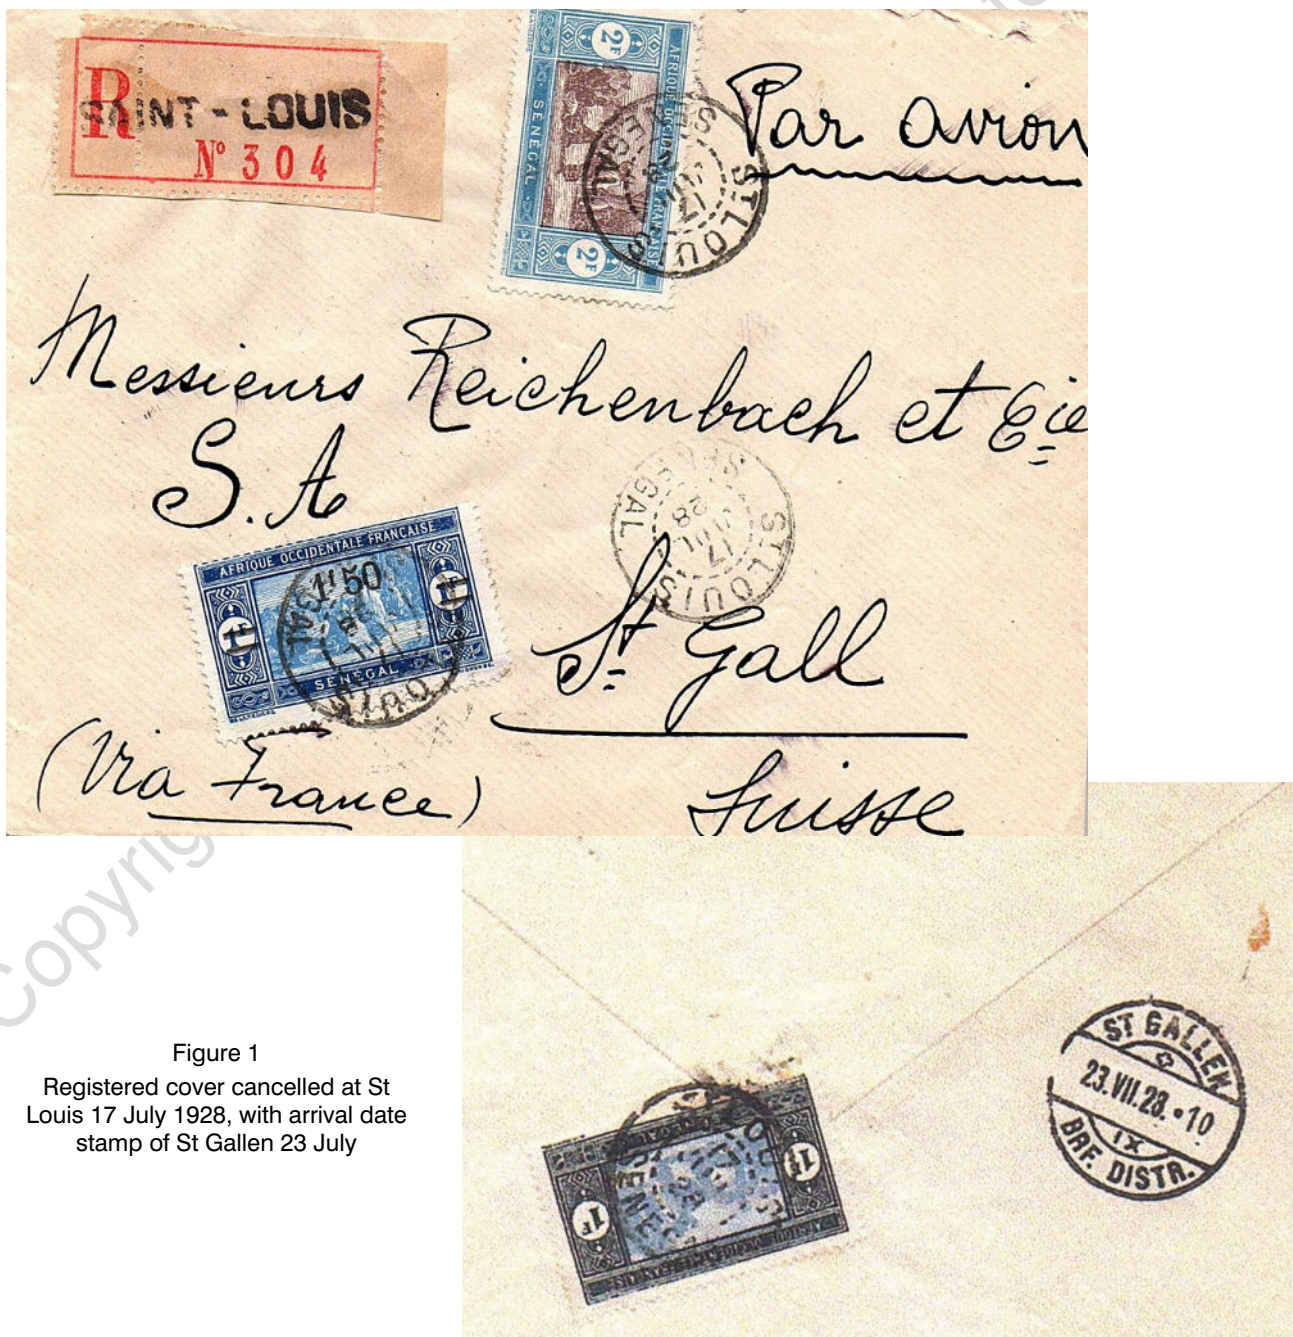 R
SAINT-LOUIS
Nº 304
2F
AFRIQUE OCCIDENTALE FRANÇAISE
SENEGAL
2F
ST LOUIS
17
JUIL
28
SENEGAL
Par avion
Messieurs Reichenbach et Cie
S.A
AFRIQUE OCCIDENTALE FRANÇAISE
1f50
1F
1F
SENEGAL
ST LOUIS
17
JUIL
28
SENEGAL
St. Gall
(Via France)
Suisse
Copyrig
Figure 1
Registered cover cancelled at St
Louis 17 July 1928, with arrival date
stamp of St Gallen 23 July
1F
1F
SENEGAL
AFRIQUE OCCIDENTALE FRANÇAISE
ST GALLEN
23.VII.28.•10
IX
BRF. DISTR.